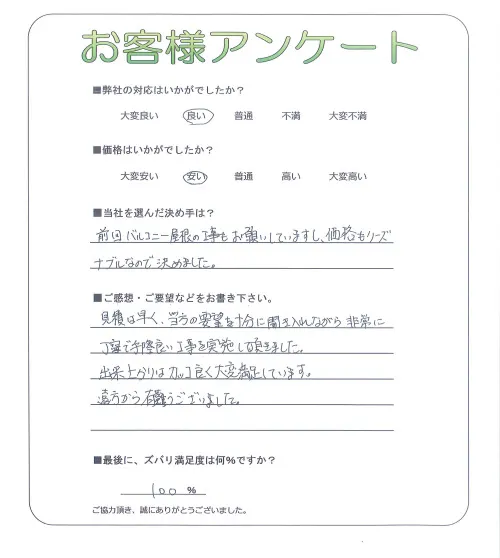 お客様アンケート
■弊社の対応はいかがでしたか？
大変良い 良い 普通 不満 大変不満
■価格はいかがでしたか？
大変安い 安い 普通 高い 大変高い
■当社を選んだ決め手は？
前回バルコニー屋根の工事もお願いしていますし、価格もリーズ
ナブルなので決めました。
■ご感想・ご要望などをお書き下さい。
見積は早く、当方の要望を十分に聞き入れながら非常に
丁寧で手際良い工事を実施して頂きました。
出来上がりはカッコ良く大変満足しています。
遠方から有難うございました。
■最後に、ズバリ満足度は何％ですか？
100 ％
ご協力頂き、誠にありがとうございました。